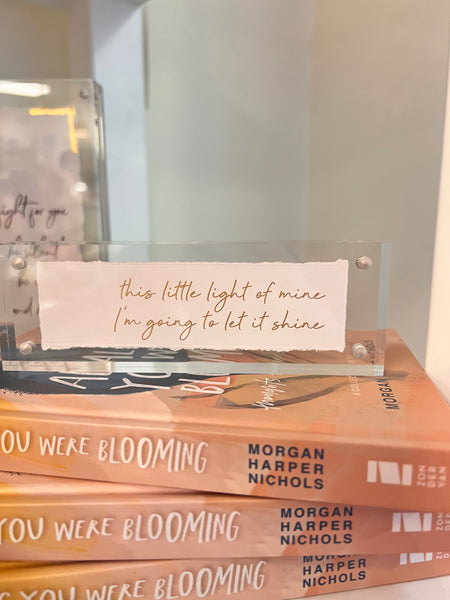 ight for you
this little light of mine
I'm going to let it shine
YOU WERE BLOOMING
MORGAN
HARPER
NICHOLS
ZON
DER
VAN
YOU WERE BLOOMING
MORGAN
HARPER
NICHOLS
ZON
DER
VAN
YOU WERE BLOOMING
MORGAN
HARPER
NICHOLS